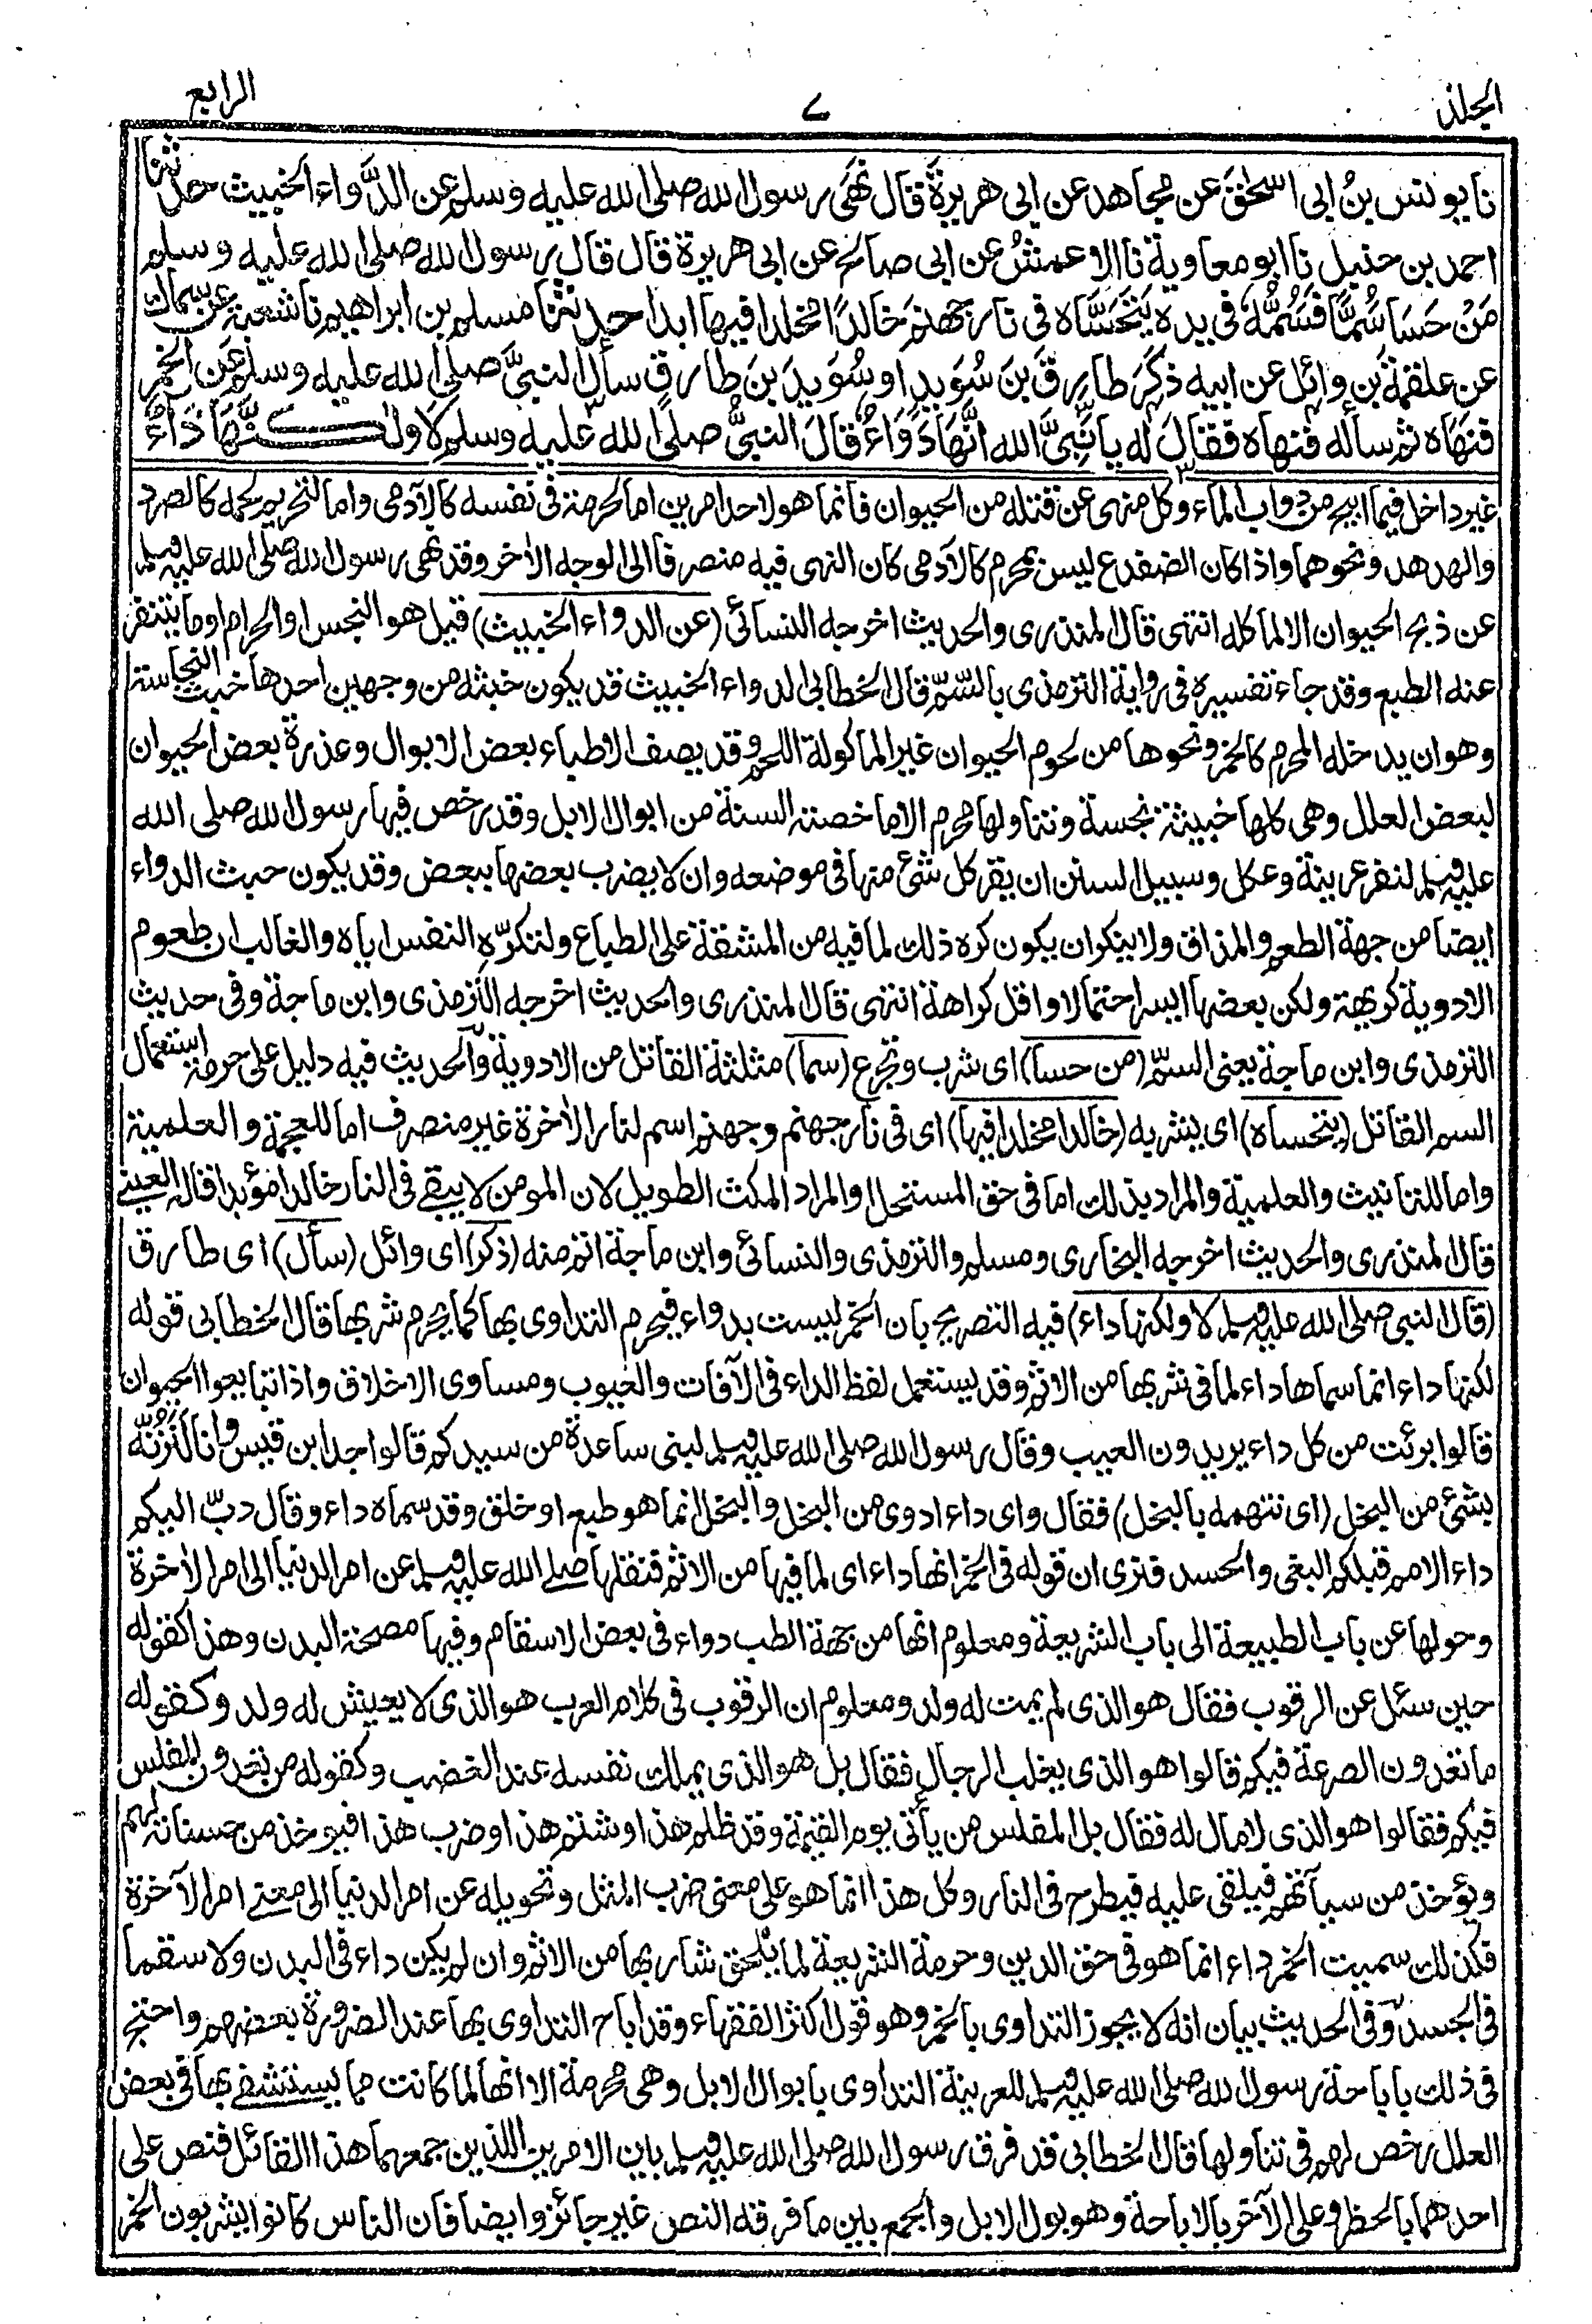 الجلد ٧ الرابع
نا يونس بنُ ابى اسحٰقَ عن مجاهد عن ابى هريرةَ قال نَهَى رسول الله صلى الله عليه وسلم عن الدَّواء الخبيث حدثنا
احمد بن حنبل نا ابو معاوية نا الاعمشُ عن ابى صالح عن ابى هريرة قال قال رسول الله صلى الله عليه وسلم
مَنْ حَسَا سُمًّا فَسُمُّهُ فى يده يَتَحَسَّاه فى نار جهنم خالدًا مخلدا فيها ابدا حدثنا مسلم بن ابراهيم نا شعبة عن سماك
عن علقمةَ بن وائل عن ابيه ذكَرَ طارقَ بنَ سُوَيد او سُوَيدَ بنَ طارقٍ سأل النبىَّ صلى الله عليه وسلم عَن الخمر
فنهَاه ثم سأله فنهاه فقال له يا نبىَّ الله انَّهَا دَوَاءٌ قالَ النبىُّ صلى الله عليه وسلم لَا ولكنَّهَا دَاءٌ
غير داخل فيما ابيح من دواب الماء وكل منهى عن قتله من الحيوان فانما هو لاحد امرين اما لحرمة فى نفسه كالآدمى واما لتحريم لحمه كالصرد
والهدهد ونحوهما واذا كان الضفدع ليس بمحرم كالآدمى كان النهى فيه منصرفا الى الوجه الاخر وقد نهى رسول الله صلى الله عليه وسلم
عن ذبح الحيوان الا لماكله انتهى قال المنذرى والحديث اخرجه النسائى (عن الدواء الخبيث) قيل هو النجس او الحرام او ما يتنفر
عنه الطبع وقد جاء تفسيره فى رواية الترمذى بالسّمّ قال الخطابى الدواء الخبيث قد يكون خبثه من وجهين احدها خبث النجاسة
وهو ان يدخله المحرم كالخمر ونحوها من لحوم الحيوان غير الماكولة اللحم وقد يصف الاطباء بعض الابوال وعذرة بعض الحيوان
لبعض العلل وهى كلها خبيثة نجسة وتناولها محرم الا ما خصته السنة من ابوال الابل وقد رخص فيها رسول الله صلى الله
عليه وسلم لنفر عرينة وعكل وسبيل السنن ان يقر كل شئ منها فى موضعه وان لا يضرب بعضها ببعض وقد يكون خبث الدواء
ايضا من جهة الطعم والمذاق ولا ينكر ان يكون كره ذلك لما فيه من المشقة على الطباع ولتكرّه النفس اياه والغالب ان طعوم
الادوية كريهة ولكن بعضها ايسر احتمالا واقل كراهة انتهى قال المنذرى والحديث اخرجه الترمذى وابن ماجة وفى حديث
الترمذى وابن ماجة يعنى السمّ (من حسا) اى شرب وتجرع (سما) مثلثة القاتل من الادوية والحديث فيه دليل على حرمة استعمال
السم القاتل (يتحساه) اى يشربه (خالدا مخلدا فيها) اى فى نار جهنم وجهنم اسم لنار الاخرة غير منصرف اما للعجمة والعلمية
واما للتانيث والعلمية والمراد بذلك اما فى حق المستحل او المراد المكث الطويل لان المومن لا يبقى فى النار خالدا مؤبدا قاله العينى
قال المنذرى والحديث اخرجه البخارى ومسلم والترمذى والنسائى وابن ماجة اتم منه (ذكر) اى وائل (سأل) اى طارق
(قال النبى صلى الله عليه وسلم لا ولكنها داء) فيه التصريح بان الخمر ليست بدواء فيحرم التداوى بها كما يحرم شربها قال الخطابى قوله
لكنها داء انما سماها داء لما فى شربها من الاثم وقد يستعمل لفظ الداء فى الآفات والعيوب ومساوى الاخلاق واذا تبايعوا الحيوان
قالوا برئت من كل داء يريدون العيب وقال رسول الله صلى الله عليه وسلم لبنى ساعدة من سيدكم قالوا جد ابن قيس وانا لَنَزُنُّه
بشئ من البخل (اى نتهمه بالبخل) فقال واى داء ادوى من البخل والبخل انما هو طبع او خلق وقد سماه داء وقال دبّ اليكم
داء الامم قبلكم البغى والحسد فنرى ان قوله فى الخمر انها داء اى لما فيها من الاثم فنقلها صلى الله عليه وسلم عن امر الدنيا الى امر الاخرة
وحولها عن باب الطبيعة الى باب الشريعة ومعلوم انها من جهة الطب دواء فى بعض الاسقام وفيها مصحة البدن وهذا كقوله
حين سئل عن الرقوب فقال هو الذى لم يمت له ولد ومعلوم ان الرقوب فى كلام العرب هو الذى لا يعيش له ولد وكقوله
ما تعدون الصرعة فيكم قالوا هو الذى يغلب الرجال فقال بل هو الذى يملك نفسه عند الغضب وكقوله من تعدون المفلس
فيكم فقالوا هو الذى لا مال له فقال بل المفلس من يأتى يوم القيمة وقد ظلم هذا وشتم هذا وضرب هذا فيوخذ من حسناته لهم
ويؤخذ من سيآتهم فيلقى عليه فيطرح فى النار وكل هذا انما هو على معنى ضرب المثل وتحويله عن امر الدنيا الى معنى امر الآخرة
فكذلك سميت الخمر داء انما هو فى حق الدين وحرمة الشريعة لما يلحق شاربها من الاثم وان لم يكن داء فى البدن ولا سقما
فى الجسد وفى الحديث بيان انه لا يجوز التداوى بالخمر وهو قول اكثر الفقهاء وقد اباح التداوى بها عند الضرورة بعضهم واحتج
فى ذلك باباحة رسول الله صلى الله عليه وسلم للعرينة التداوى بابوال الابل وهى محرمة الا انها لما كانت مما يستشفى بها فى بعض
العلل رخص لهم فى تناولها قال الخطابى قد فرق رسول الله صلى الله عليه وسلم بين الامرين اللذين جمعهما هذا القائل فنص على
احدهما بالحظر وعلى الآخر بالاباحة وهو بول الابل والجمع بين ما فرقه النص غير جائز وايضا فان الناس كانوا يشربون الخمر